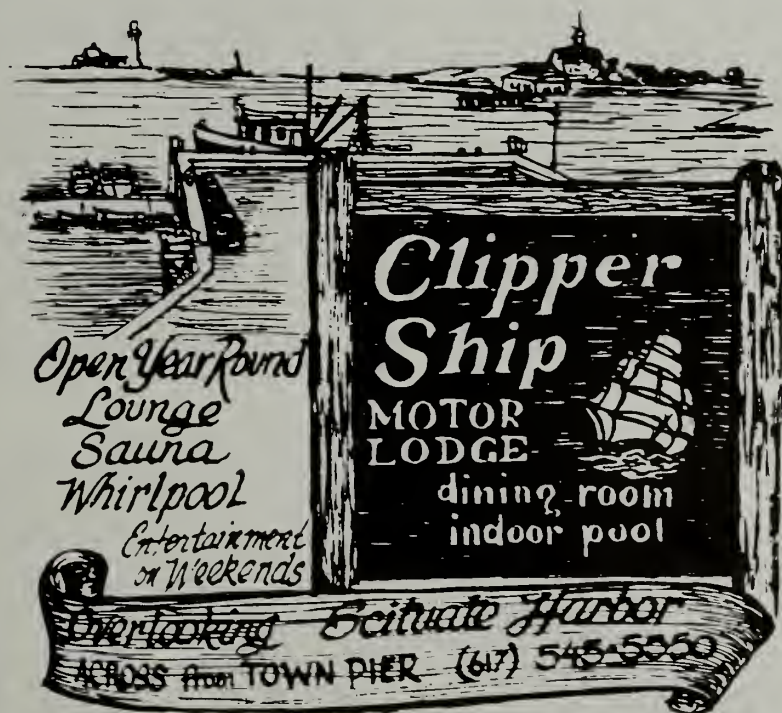 Clipper
Ship
MOTOR
LODGE
dining room
indoor pool
Open Year Round
Lounge
Sauna
Whirlpool
Entertainment
on Weekends
Overlooking Scituate Harbor
ACROSS from TOWN PIER (617) 545-5550